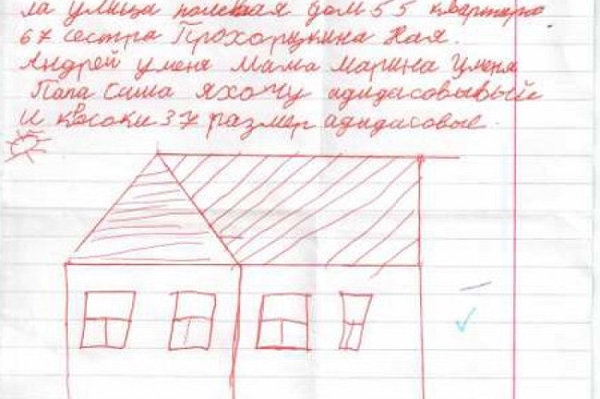 ла улица полевая дом 55 квартира
67 сестра Прохорушкина Ная.
Андрей уменя Мама марина Уменя
Папа Саша яхочу адидасовывый
И квсоки 37 размер адидасовые.